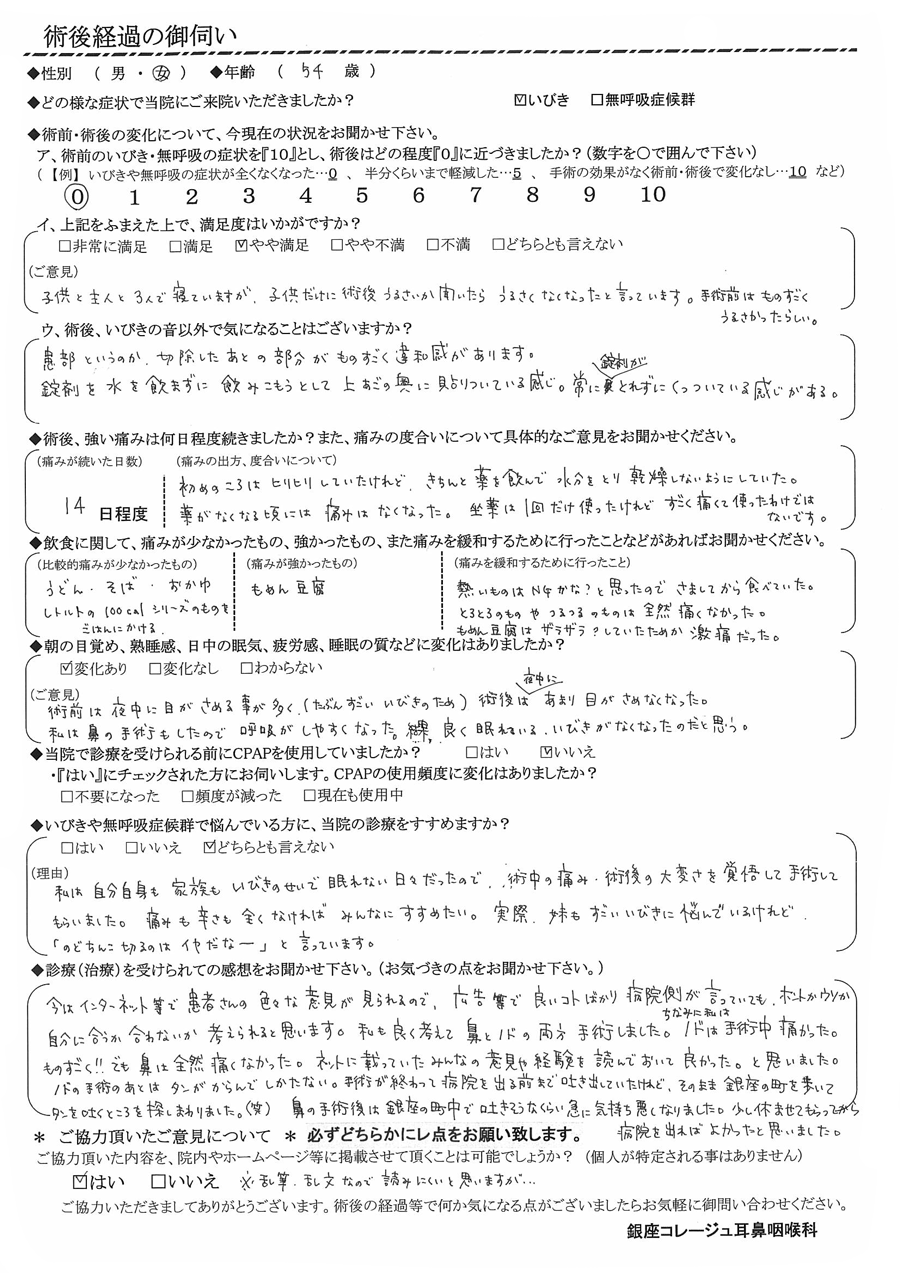 術後経過の御伺い
◆性別 ( 男 ・ 女 ) ◆年齢 ( 54 歳 )
◆どの様な症状で当院にご来院いただきましたか? ☑いびき □無呼吸症候群
◆術前・術後の変化について、今現在の状況をお聞かせ下さい。
ア、術前のいびき・無呼吸の症状を『10』とし、術後はどの程度『0』に近づきましたか?(数字を○で囲んで下さい)
(【例】 いびきや無呼吸の症状が全くなくなった…0 、 半分くらいまで軽減した…5 、 手術の効果がなく術前・術後で変化なし…10 など)
0 1 2 3 4 5 6 7 8 9 10
イ、上記をふまえた上で、満足度はいかがですか?
□非常に満足 □満足 ☑やや満足 □やや不満 □不満 □どちらとも言えない
(ご意見)
子供と主人と3人で寝ていますが、子供だけに術後うるさいか聞いたら うるさくなくなったと言っています。手術前は ものすごく
うるさかったらしい。
ウ、術後、いびきの音以外で気になることはございますか?
患部というのか、切除したあとの部分がものすごく違和感があります。
錠剤を水を飲まずに飲みこもうとして上あごの奥に貼りついている感じ。常に錠剤がとれずにくっついている感じがある。
◆術後、強い痛みは何日程度続きましたか?また、痛みの度合いについて具体的なご意見をお聞かせください。
(痛みが続いた日数) (痛みの出方、度合いについて)
初めのころは ヒリヒリしていたけれど、きちんと薬を飲んで 水分をとり 乾燥しないようにしていた。
14 日程度 薬がなくなる頃には 痛みは なくなった。 坐薬は1回だけ使ったけれど すごく痛くて使ったわけでは
ないです。
◆飲食に関して、痛みが少なかったもの、強かったもの、また痛みを緩和するために行ったことなどがあればお聞かせください。
(比較的痛みが少なかったもの) (痛みが強かったもの) (痛みを緩和するために行ったこと)
うどん・そば・おかゆ もめん豆腐 熱いものはNGかな?と思ったので さましてから食べていた。
レトルトの100calシリーズのものを とろとろのものや つるつるのものは全然痛くなかった。
ごはんにかける もめん豆腐はザラザラ?していたためか 激痛だった。
◆朝の目覚め、熟睡感、日中の眠気、疲労感、睡眠の質などに変化はありましたか?
☑変化あり □変化なし □わからない
(ご意見)
術前は夜中に目がさめる事が多く、(たぶんすごいいびきのため) 術後は夜中に あまり目がさめなくなった。
私は鼻の手術もしたので 呼吸がしやすくなった。 良く眠れている。いびきがなくなったのだと思う。
◆当院で診療を受けられる前にCPAPを使用していましたか? □はい ☑いいえ
・『はい』にチェックされた方にお伺いします。CPAPの使用頻度に変化はありましたか?
□不要になった □頻度が減った □現在も使用中
◆いびきや無呼吸症候群で悩んでいる方に、当院の診療をすすめますか?
□はい □いいえ ☑どちらとも言えない
(理由)
私は自分自身も家族もいびきのせいで眠れない日々だったので、術中の痛み・術後の大変さを覚悟して手術して
もらいました。痛みも辛さも全くなければみんなにすすめたい。実際、妹もすごいいびきに悩んでいるけれど、
「のどちんこ切るのはイヤだなー」と言っています。
◆診療(治療)を受けられての感想をお聞かせ下さい。(お気づきの点をお聞かせ下さい。)
今はインターネット等で患者さんの色々な意見が見られるので、広告等で良いコトばかり病院側が言っていても、ホントかウソか
自分に合うか合わないか考えられると思います。私も良く考えて鼻とノドの両方手術しました。ちなみに私はノドは手術中痛かった。
ものすごく!!でも鼻は全然痛くなかった。ネットに載っていたみんなの意見や経験を読んでおいて良かった。と思いました。
ノドの手術のあとはタンがからんでしかたない。手術が終わって病院を出る前まで吐き出していたけれど、そのまま銀座の町を歩いて
タンを吐くところを探しまわりました。(笑) 鼻の手術後は銀座の町中で吐きそうなくらい急に気持ち悪くなりました。少し休ませてもらってから
病院を出ればよかったと思いました。
* ご協力頂いたご意見について * 必ずどちらかにレ点をお願い致します。
ご協力頂いた内容を、院内やホームページ等に掲載させて頂くことは可能でしょうか? (個人が特定される事はありません)
☑はい □いいえ ※乱筆、乱文なので読みにくいと思いますが…
ご協力いただきましてありがとうございます。術後の経過等で何か気になる点がございましたらお気軽に御問い合わせください。
銀座コレージュ耳鼻咽喉科